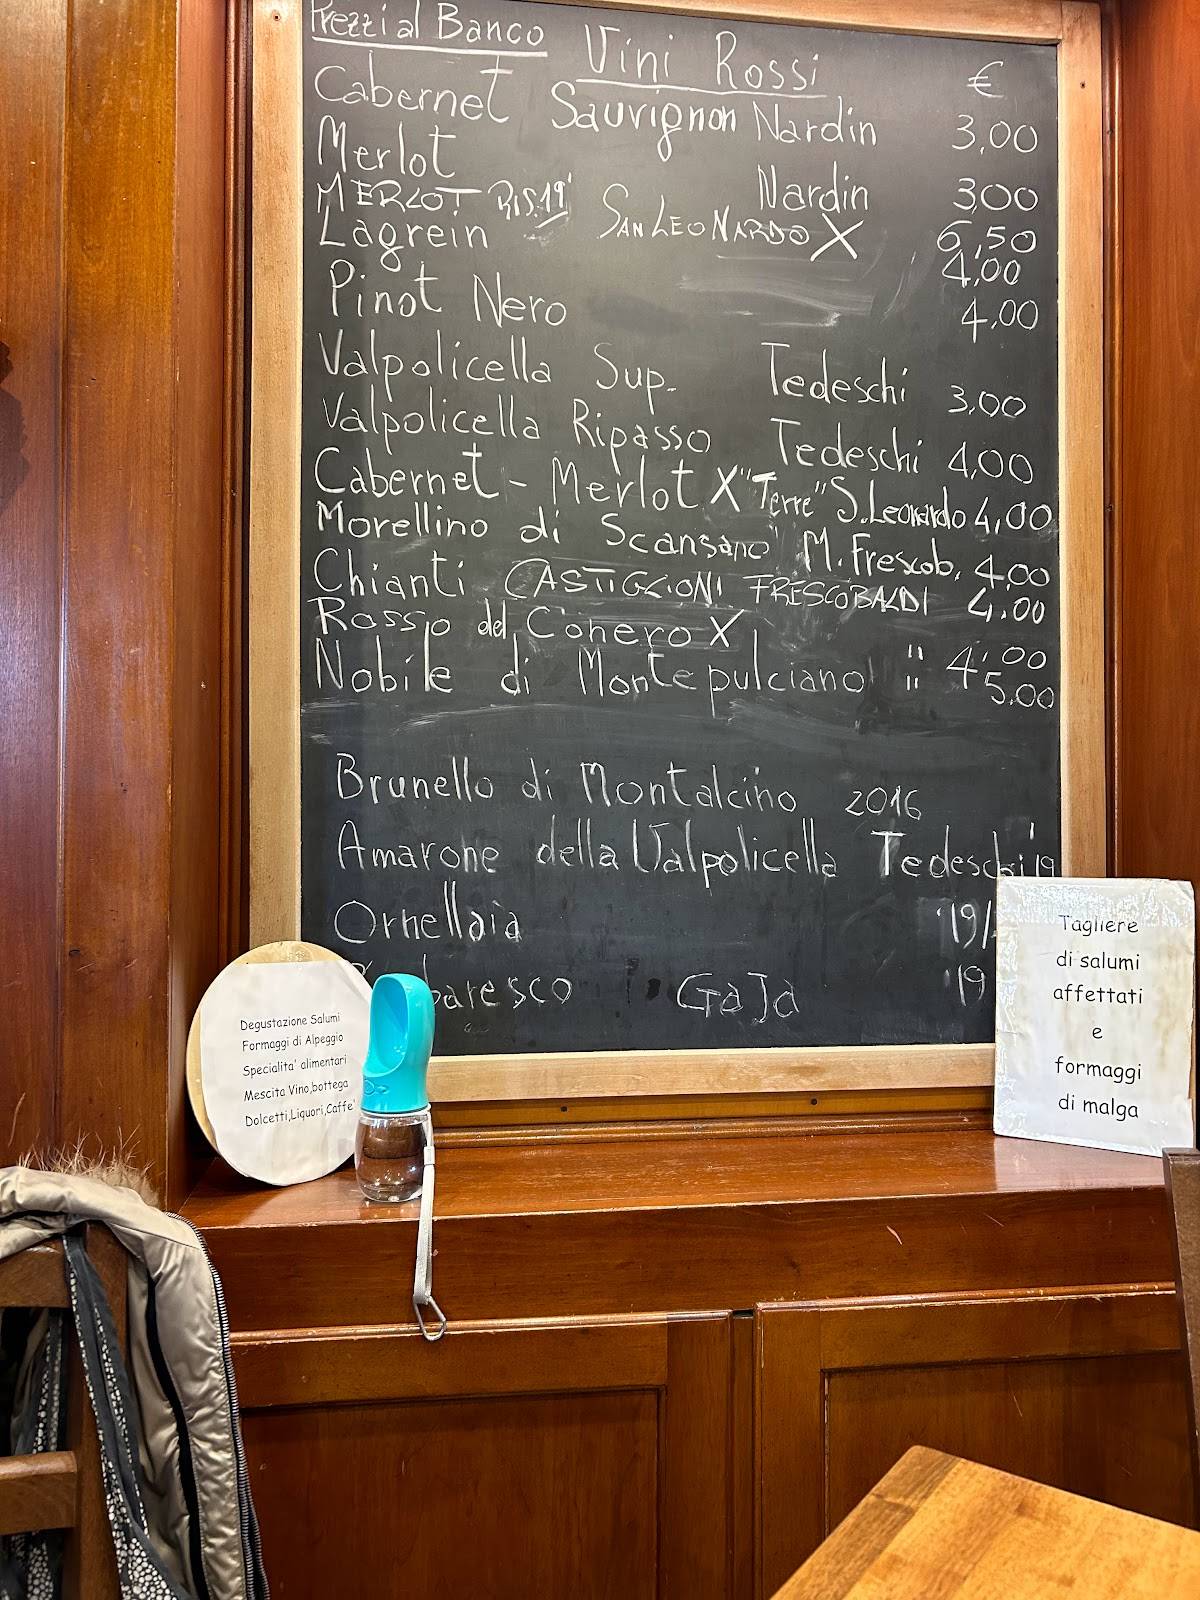 Prezzi al Banco Vini Rossi €
Cabernet Sauvignon Nardin 3,00
Merlot Nardin 3,00
MERLOT RIS. 19' SAN LEONARDO X 6,50
Lagrein 4,00
Pinot Nero 4,00
Valpolicella Sup. Tedeschi 3,00
Valpolicella Ripasso Tedeschi 4,00
Cabernet - Merlot X "Terre" S. Leonardo 4,00
Morellino di Scansano M. Frescob. 4,00
Chianti CASTIGLIONI FRESCOBALDI 4,00
Rosso del Conero X " 4,00
Nobile di Montepulciano " 5,00
Brunello di Montalcino 2016
Amarone della Valpolicella Tedeschi '19
Ornellaia '19/
baresco GaJa '19
Degustazione Salumi
Formaggi di Alpeggio
Specialita' alimentari
Mescita Vino,bottega
Dolcetti,Liquori,Caffe'
Tagliere
di salumi
affettati
e
formaggi
di malga